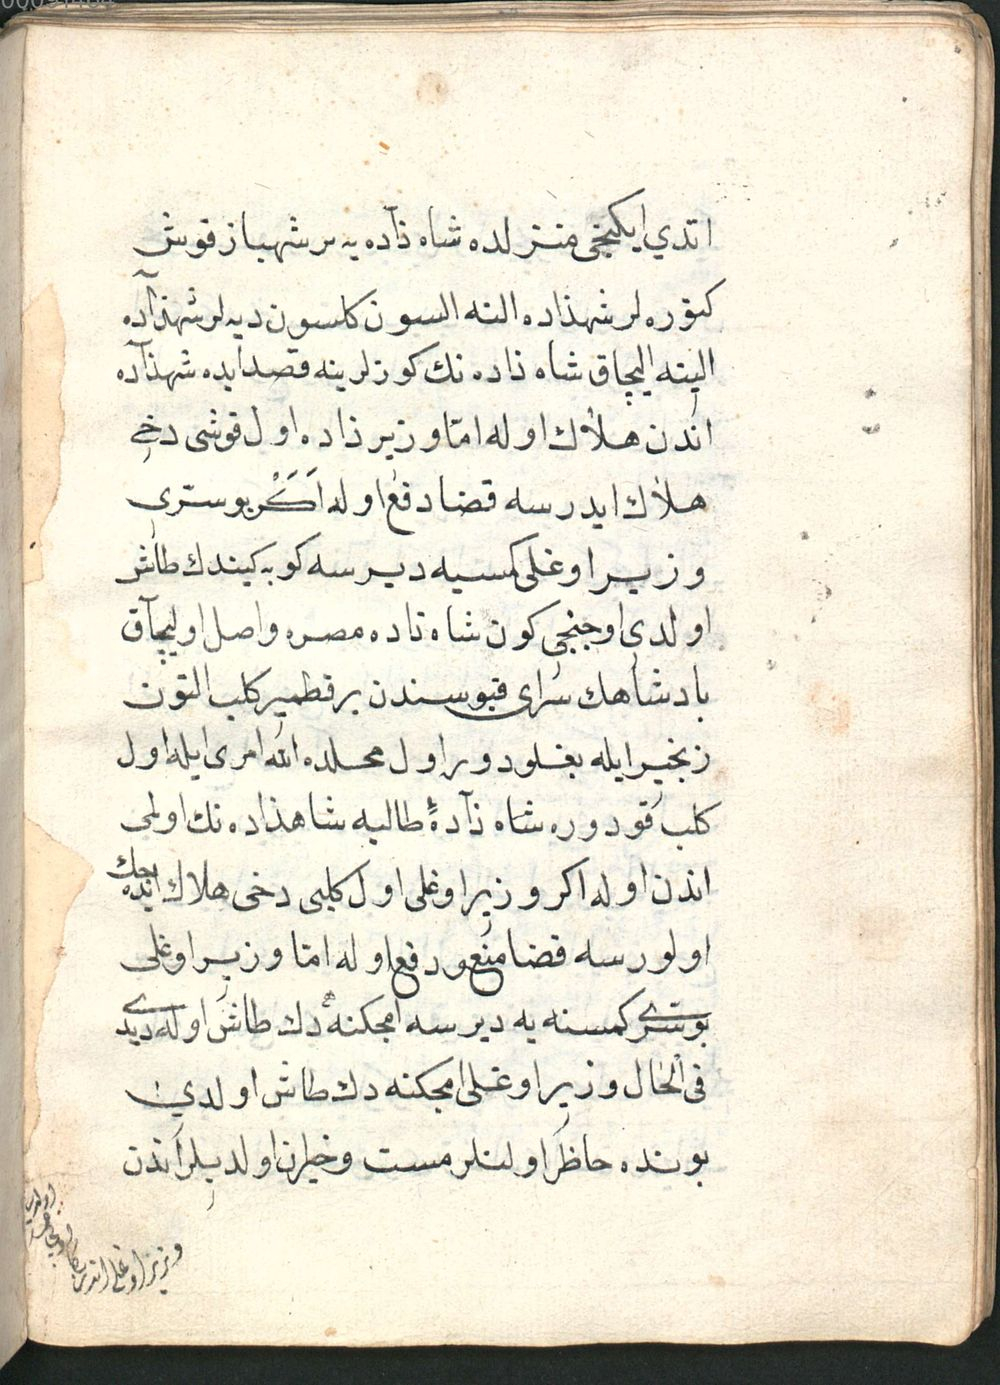 اتدي ايكنجى منزلده شاه ذآده يه بر شهباز قوش
كتوره لر شهذاده النه السون كلسون ديه لر شهذآده
الينه اليجاق شاه ذاده نك كوزلرينه قصد ايده شهذآده
اندن هلاك اوله امّا وزير ذاده اول قوشى دخى
هلاك ايدرسه قضا دفع اوله اَكَرْ بو سترى
وزير اوغلى كمسيه ديرسه كوبه كيندك طاش
اولدى اوجنجى كون شاه ذاده مصره واصل اوليجآق
بادشاهك سراى قبوسندن بر قطمير كلب التون
زنجير ايله بغلودور اول محلده الله امرى ايله اول
كلب قودوره شاه ذآدهٔ طالبه شاهذاده نك اولمى
اندن اوله اكر وزير اوغلى اول كلبى دخى هلاك ايده جك
اولورسه قضا منع و دفع اوله امّا وزير اوغلى
بو سترى كمسنه يه ديرسه امجكنه دك طاش اوله ديدى
فى الحال وزير اوغلى امجكنه دك طاش اولدي
بونده حاظر اولنلر مست وحيران اولديلر اندن
وزير اوغلى اندن